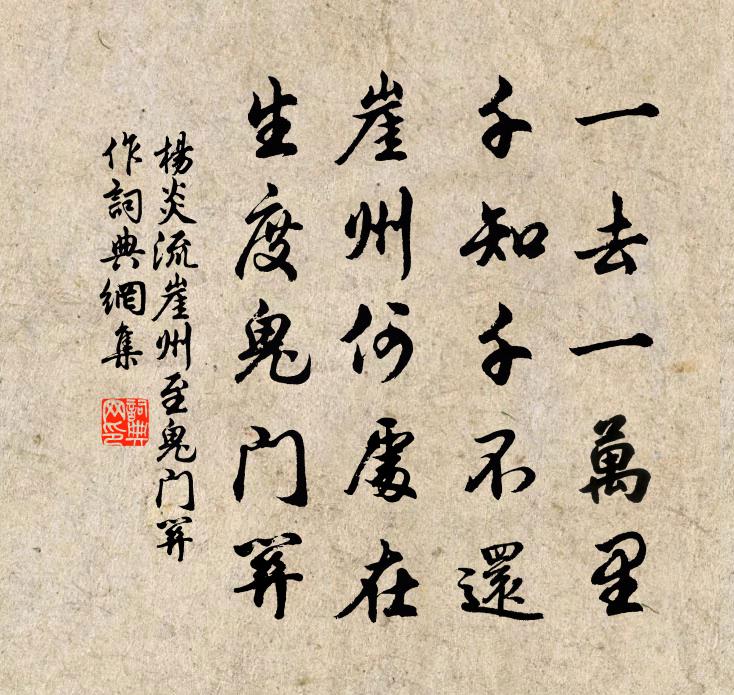 一去一萬里
千知千不還
崖州何處在
生度鬼门關
楊炎流崖州至鬼门關
作詞典網集
詞典
网印